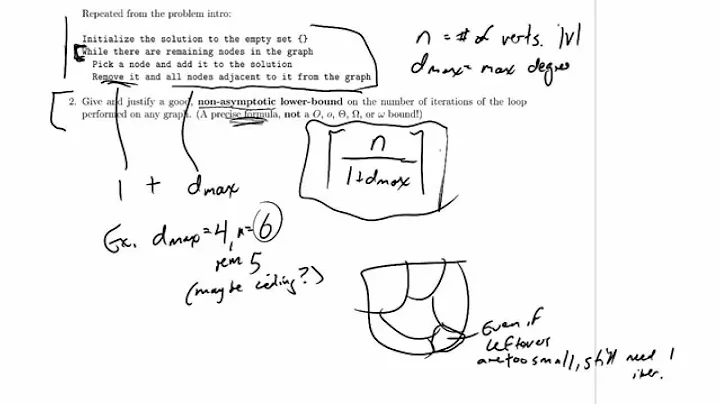 Repeated from the problem intro:
Initialize the solution to the empty set {}
While there are remaining nodes in the graph
Pick a node and add it to the solution
Remove it and all nodes adjacent to it from the graph
2. Give and justify a good, non-asymptotic lower-bound on the number of iterations of the loop
performed on any graph. (A precise formula, not a O, o, Θ, Ω, or ω bound!)
n = # of verts. |V|
dmax = max degree
⌈n / 1+dmax⌉
1 + dmax
Ex. dmax = 4, n = 6
rem 5
(maybe ceiling?)
Even if
leftovers
are too small, still need 1
iter.